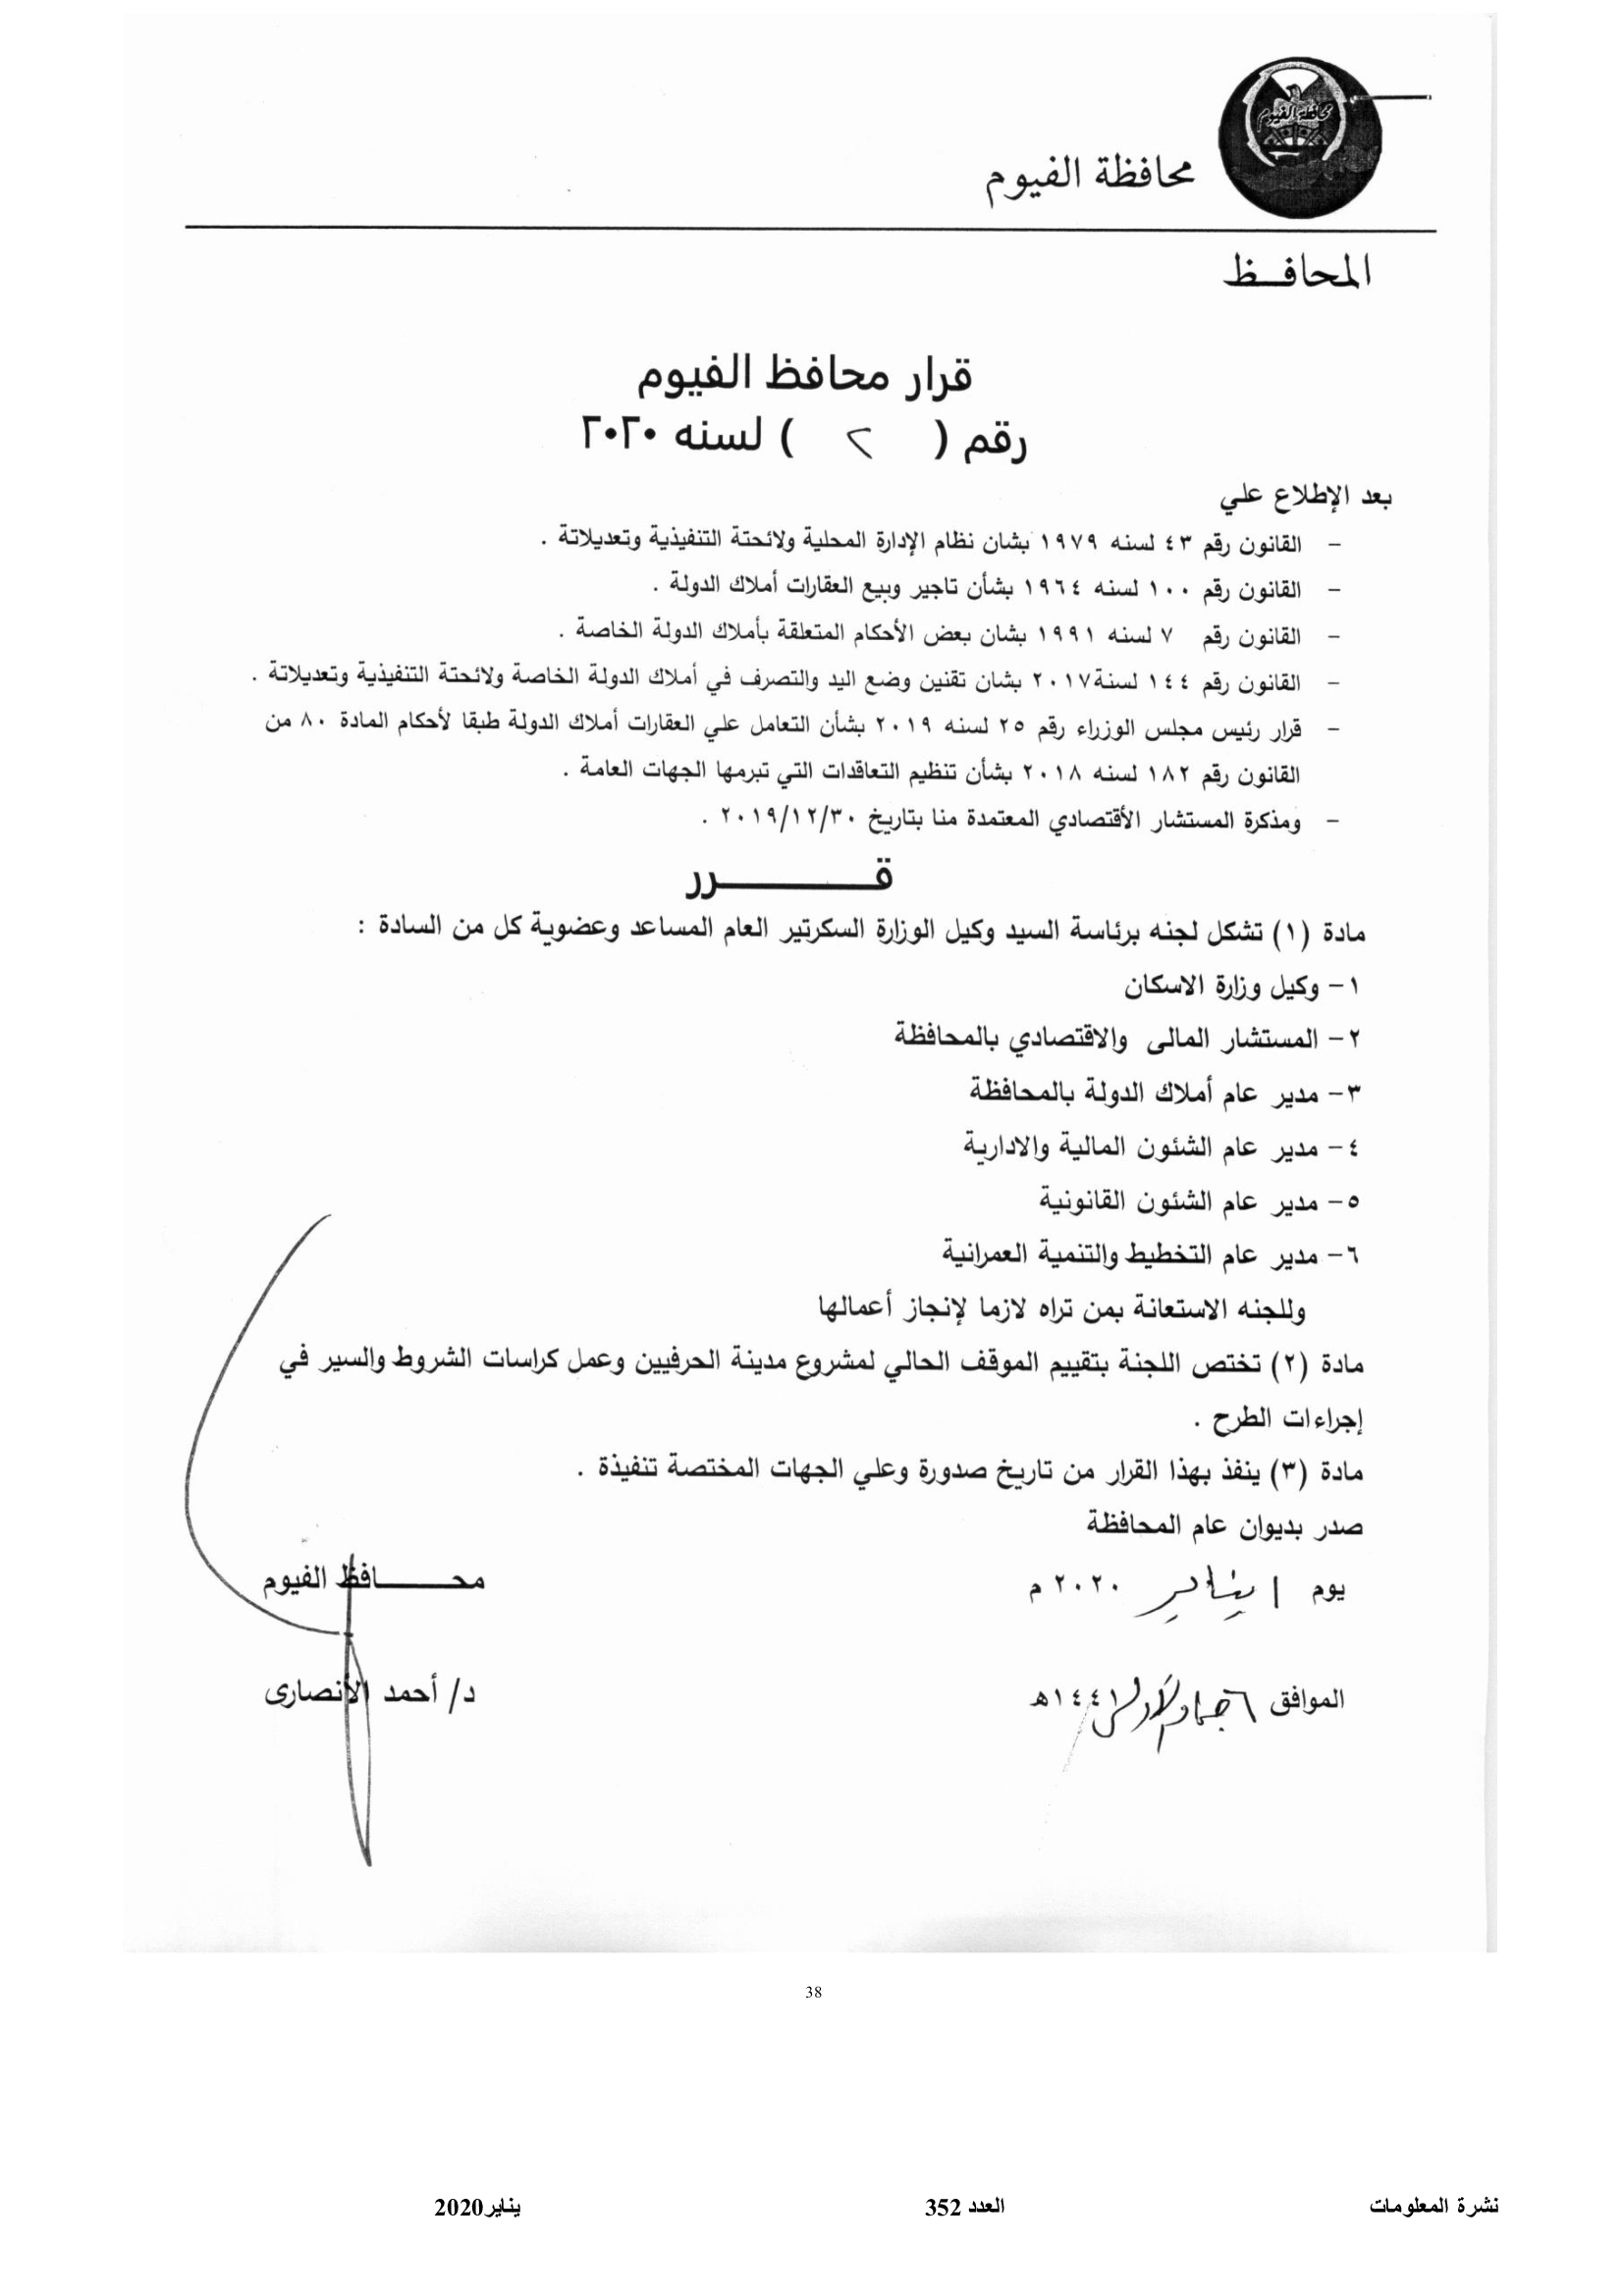 محافظة الفيوم
محافظة الفيوم
المحافـظ
قرار محافظ الفيوم
رقم ( ٢ ) لسنه ٢٠٢٠
بعد الإطلاع علي
- القانون رقم ٤٣ لسنه ١٩٧٩ بشان نظام الإدارة المحلية ولائحتة التنفيذية وتعديلاتة .
- القانون رقم ١٠٠ لسنه ١٩٦٤ بشأن تاجير وبيع العقارات أملاك الدولة .
- القانون رقم ٧ لسنه ١٩٩١ بشان بعض الأحكام المتعلقة بأملاك الدولة الخاصة .
- القانون رقم ١٤٤ لسنة٢٠١٧ بشان تقنين وضع اليد والتصرف في أملاك الدولة الخاصة ولائحتة التنفيذية وتعديلاتة .
- قرار رئيس مجلس الوزراء رقم ٢٥ لسنه ٢٠١٩ بشأن التعامل علي العقارات أملاك الدولة طبقا لأحكام المادة ٨٠ من
القانون رقم ١٨٢ لسنه ٢٠١٨ بشأن تنظيم التعاقدات التي تبرمها الجهات العامة .
- ومذكرة المستشار الأقتصادي المعتمدة منا بتاريخ ٢٠١٩/١٢/٣٠ .
قـــــــرر
مادة (١) تشكل لجنه برئاسة السيد وكيل الوزارة السكرتير العام المساعد وعضوية كل من السادة :
١- وكيل وزارة الاسكان
٢- المستشار المالى والاقتصادي بالمحافظة
٣- مدير عام أملاك الدولة بالمحافظة
٤- مدير عام الشئون المالية والادارية
٥- مدير عام الشئون القانونية
٦- مدير عام التخطيط والتنمية العمرانية
وللجنه الاستعانة بمن تراه لازما لإنجاز أعمالها
مادة (٢) تختص اللجنة بتقييم الموقف الحالي لمشروع مدينة الحرفيين وعمل كراسات الشروط والسير في
إجراءات الطرح .
مادة (٣) ينفذ بهذا القرار من تاريخ صدورة وعلي الجهات المختصة تنفيذة .
صدر بديوان عام المحافظة
يوم ١ يناير ٢٠٢٠ م
محـــــافظ الفيوم
الموافق ٦ جماد الأولى ١٤٤١هـ
د/ أحمد الأنصارى
38
نشرة المعلومات العدد 352 يناير2020